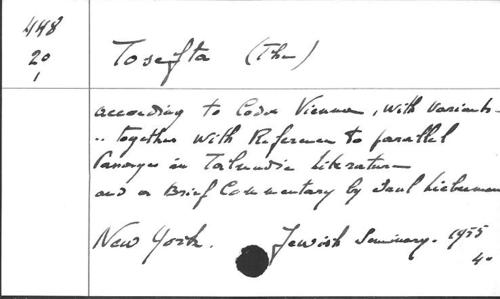 448
20
1
Tosefta (The)
according to Codex Vienna, with variants -
.. together with Reference to parallel
Passages in Talmudic Literature
and a Brief Commentary by Saul Lieberman
New York. Jewish Seminary. 1955
4°